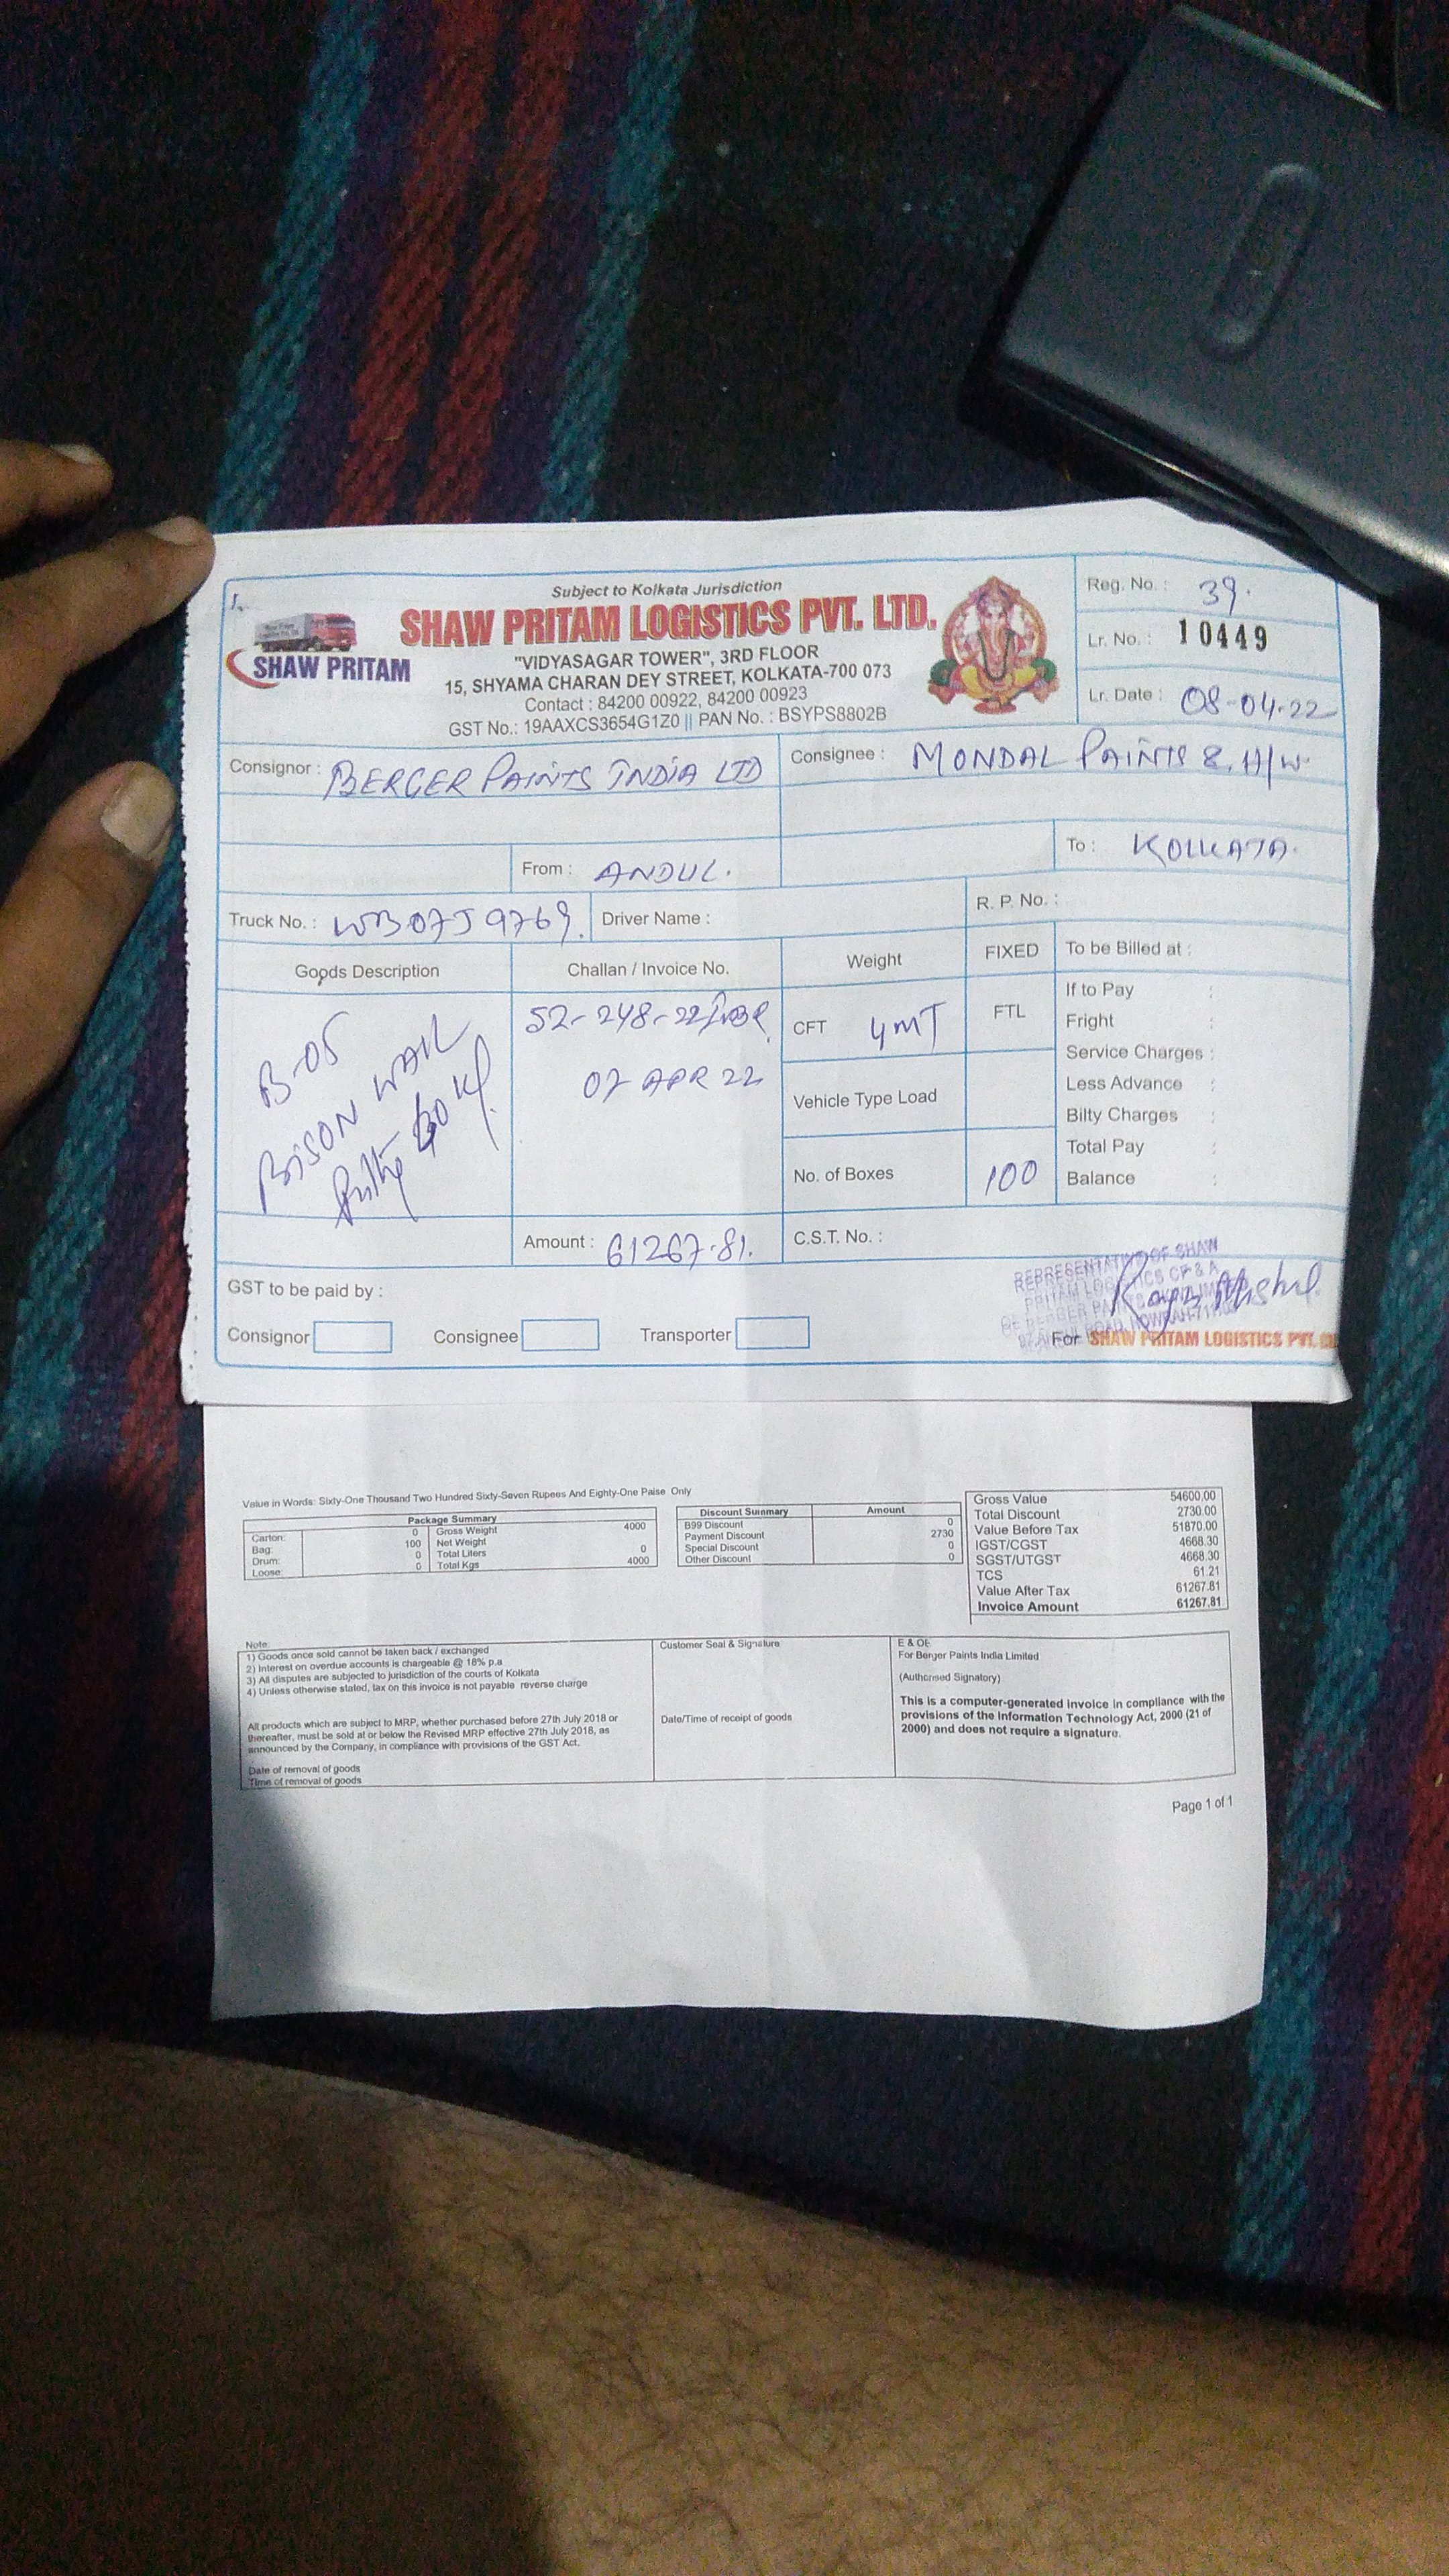 Subject to Kolkata Jurisdiction
SHAW PRITAM
SHAW PRITAM LOGISTICS PVT. LTD.
"VIDYASAGAR TOWER", 3RD FLOOR
15, SHYAMA CHARAN DEY STREET, KOLKATA-700 073
Contact : 84200 00922, 84200 00923
GST No.: 19AAXCS3654G1Z0 || PAN No. : BSYPS8802B
Reg. No. : 39.
Lr. No. : 10449
Lr. Date : 08-04-22
Consignor : BERGER PAINTS INDIA LTD
Consignee : MONDAL PAINTS & H/W.
From : ANDUL.
To : KOLKATA.
Truck No. : WB07J9769.
Driver Name :
R. P. No. :
Goods Description
B-05
BISON WALL
Putty
Challan / Invoice No.
52-248-22/
07 APR 22
Weight
FIXED
CFT 4MT
FTL
Vehicle Type Load
No. of Boxes 100
To be Billed at :
If to Pay :
Fright :
Service Charges :
Less Advance :
Bilty Charges :
Total Pay :
Balance :
Amount : 61267.81.
C.S.T. No. :
GST to be paid by :
Consignor
Consignee
Transporter
REPRESENTATIVE OF SHAW
PRITAM LOGISTICS CP & A
For SHAW PRITAM LOGISTICS PVT.
Value in Words: Sixty-One Thousand Two Hundred Sixty-Seven Rupees And Eighty-One Paise Only
Package Summary
Carton: 0 Gross Weight 4000
Bag: 100 Net Weight
Drum: 0 Total Liters 0
Loose: 0 Total Kgs 4000
Discount Summary Amount
B99 Discount 0
Payment Discount 2730
Special Discount 0
Other Discount 0
Gross Value 54600.00
Total Discount 2730.00
Value Before Tax 51870.00
IGST/CGST 4668.30
SGST/UTGST 4668.30
TCS 61.21
Value After Tax 61267.81
Invoice Amount 61267.81
Note:
1) Goods once sold cannot be taken back / exchanged
2) Interest on overdue accounts is chargeable @ 18% p.a
3) All disputes are subjected to jurisdiction of the courts of Kolkata
4) Unless otherwise stated, tax on this invoice is not payable reverse charge
All products which are subject to MRP, whether purchased before 27th July 2018 or
thereafter, must be sold at or below the Revised MRP effective 27th July 2018, as
announced by the Company, in compliance with provisions of the GST Act.
Date of removal of goods
Time of removal of goods
Customer Seal & Signature
Date/Time of receipt of goods
E & OE
For Berger Paints India Limited
(Authorised Signatory)
This is a computer-generated invoice in compliance with the
provisions of the Information Technology Act, 2000 (21 of
2000) and does not require a signature.
Page 1 of 1